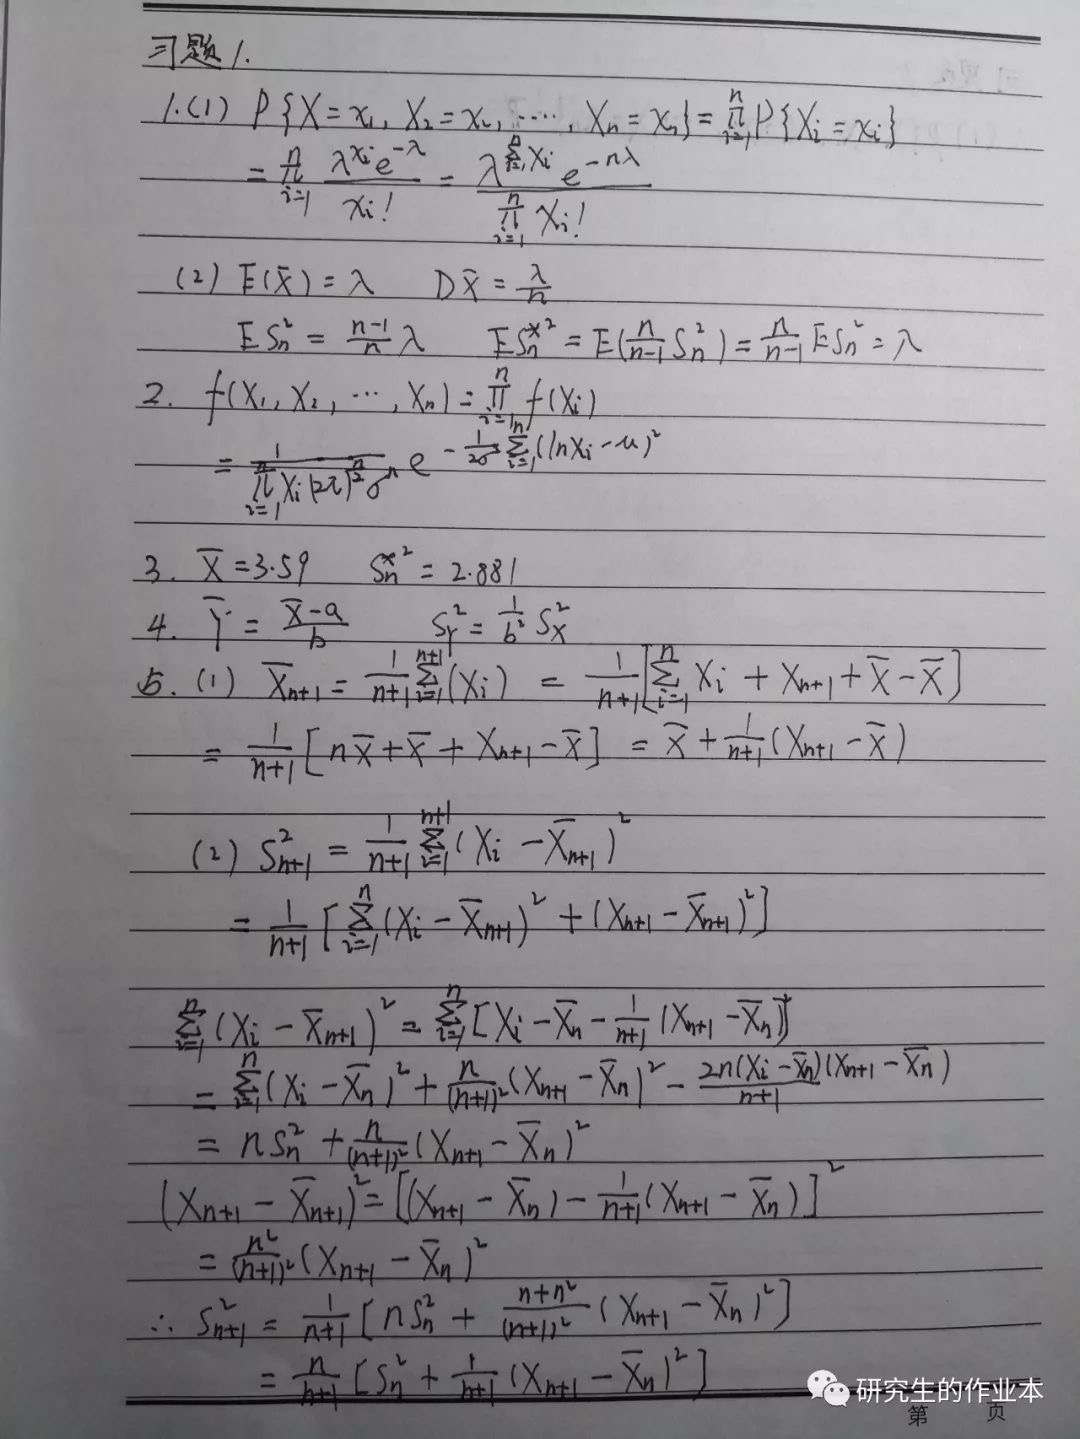 习题1.
1.(1) P{X=x₁, X₂=x₂, ⋯, Xₙ=xₙ} = ∏_{i=1}^{n} P{Xᵢ=xᵢ}
= ∏_{i=1}^{n} \frac{λ^{xᵢ}e^{-λ}}{xᵢ!} = \frac{λ^{∑_{i=1}^{n}Xᵢ} e^{-nλ}}{∏_{i=1}^{n} Xᵢ!}
(2) E(X̄)=λ DX̄=\frac{λ}{n}
ESₙ² = \frac{n-1}{n}λ ESₙ*² = E(\frac{n}{n-1}Sₙ²) = \frac{n}{n-1}ESₙ² = λ
2. f(X₁, X₂, ⋯, Xₙ) = ∏_{i=1}^{n} f(Xᵢ)
= \frac{1}{∏_{i=1}^{n} Xᵢ(2π)^{\frac{n}{2}}σⁿ} e^{-\frac{1}{2σ}∑_{i=1}^{n}(lnXᵢ-u)²}
3. X̄=3.59 Sₙ*²=2.881
4. Ȳ = \frac{X̄-a}{b} S_Y² = \frac{1}{b²}S_X²
5. (1) X̄ₙ₊₁ = \frac{1}{n+1}∑_{i=1}^{n+1}(Xᵢ) = \frac{1}{n+1}[∑_{i=1}^{n}Xᵢ + Xₙ₊₁ + X̄ - X̄]
= \frac{1}{n+1}[nX̄ + X̄ + Xₙ₊₁ - X̄] = X̄ + \frac{1}{n+1}(Xₙ₊₁ - X̄)
(2) Sₙ₊₁² = \frac{1}{n+1}∑_{i=1}^{n+1}(Xᵢ - X̄ₙ₊₁)²
= \frac{1}{n+1}[∑_{i=1}^{n}(Xᵢ - X̄ₙ₊₁)² + (Xₙ₊₁ - X̄ₙ₊₁)²]
∑_{i=1}^{n}(Xᵢ - X̄ₙ₊₁)² = ∑_{i=1}^{n}[Xᵢ - X̄ₙ - \frac{1}{n+1}(Xₙ₊₁ - X̄ₙ)]²
= ∑_{i=1}^{n}(Xᵢ - X̄ₙ)² + \frac{n}{(n+1)²}(Xₙ₊₁ - X̄ₙ)² - \frac{2n(Xᵢ-X̄ₙ)(Xₙ₊₁-X̄ₙ)}{n+1}
= nSₙ² + \frac{n}{(n+1)²}(Xₙ₊₁ - X̄ₙ)²
(Xₙ₊₁ - X̄ₙ₊₁)² = [(Xₙ₊₁ - X̄ₙ) - \frac{1}{n+1}(Xₙ₊₁ - X̄ₙ)]²
= \frac{n²}{(n+1)²}(Xₙ₊₁ - X̄ₙ)²
∴ Sₙ₊₁² = \frac{1}{n+1}[nSₙ² + \frac{n+n²}{(n+1)²}(Xₙ₊₁ - X̄ₙ)²]
= \frac{n}{n+1}[Sₙ² + \frac{1}{n+1}(Xₙ₊₁ - X̄ₙ)²]
研究生的作业本
第 页